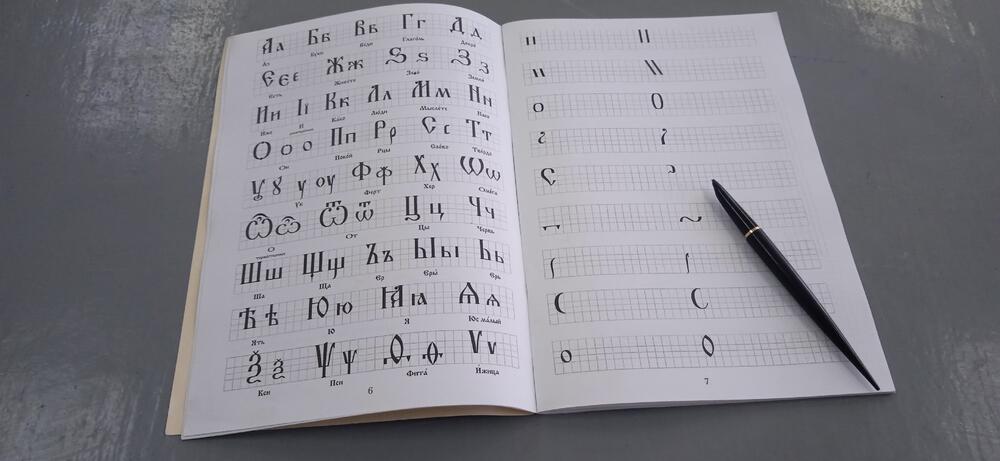 Аа Бб Вв Гг Дд
Аз Буки Веди Глаголь Добро
Єєε Жж Ѕѕ Зз
Есть Живете Зело Земля
Ии Іі Кк Лл Мм Нн
Иже И Како Люди Мыслете Наш
Ооо Пп Рр Сс Тт
Он Покой Рцы Слово Твердо
Ѹꙋ ѹ оу Фф Хх Ѡѡ
Ук Ферт Хер Омега
Ѽѽ Ѿѿ Цц Чч
О От Цы Червь
Шш Щщ Ъъ Ыы Ьь
Ша Ща Ер Еры Ерь
Ѣѣ Юю Ꙗꙗ Ѧѧ
Ять Ю Я Юс малый
Ѯѯ Ѱѱ Ѳѳ Ѵѵ
Кси Пси Фита Ижица
6
7